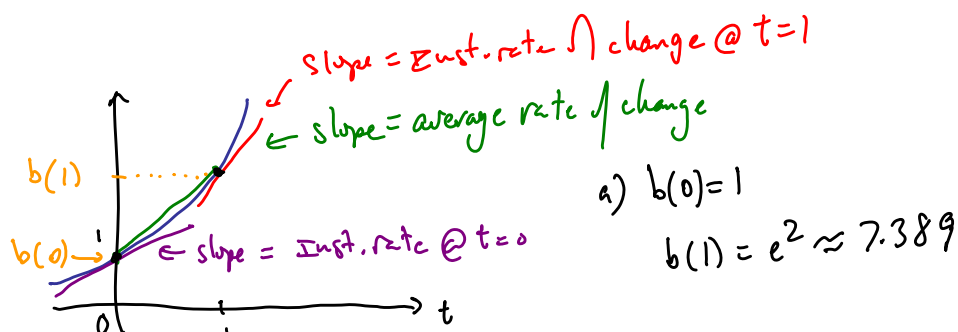 slope = Inst. rate of change @ t=1
slope = average rate of change
b(1)
a) b(0)=1
1
b(0)
slope = Inst. rate @ t=0
b(1) = e² ≈ 7.389
t
0
1